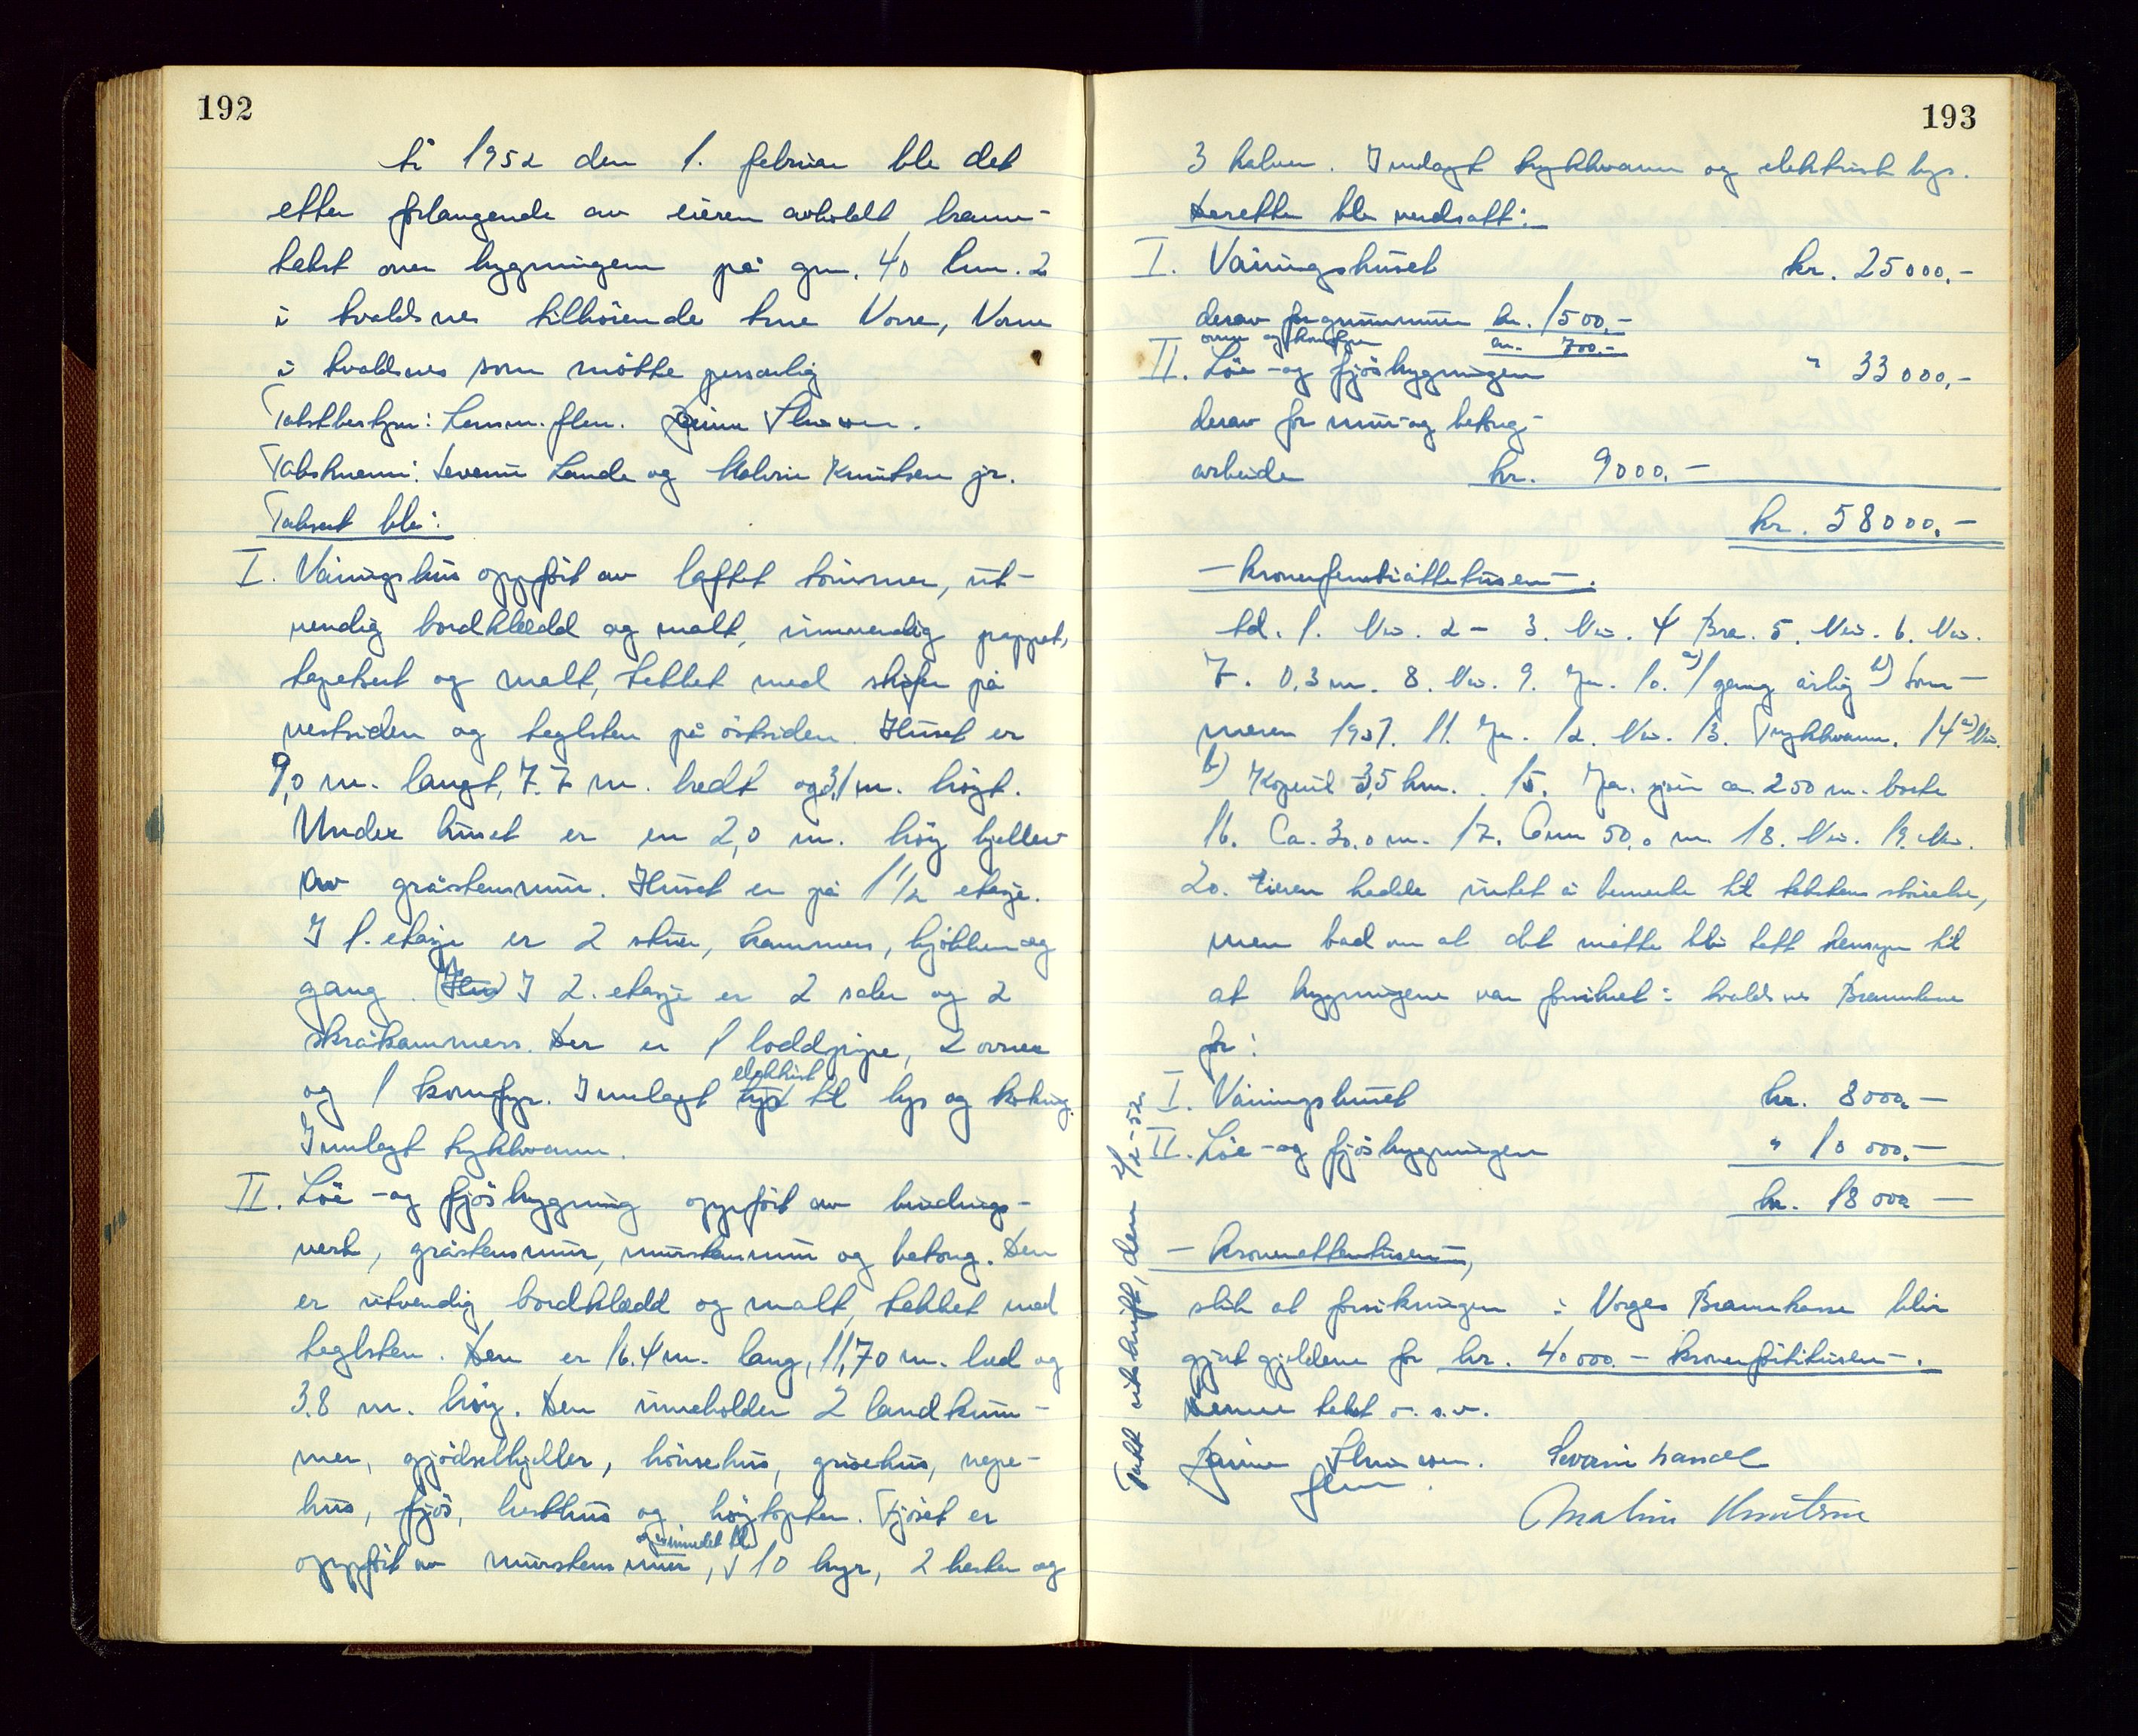 192
År 1952 den 1. februar ble det
etter forlangende av eieren avholdt brann-
takst over bygningene på gnr. 40 bnr. 2
i Avaldsnes tilhørende Arne Vorre, Vorre
i Avaldsnes som møtte personlig
Takstbestyrer: Lensm. flm.
Takstmenn: Severin Lande og Malvin Knutsen jr.
Taksert ble:
I. Våningshus oppført av laftet tømmer, ut-
vendig bordkledd og malt, innvendig pappet,
tapetsert og malt, tekket med skifer på
vestsiden og teglsten på östsiden. Huset er
9,0 m. langt, 7.7 m. bredt og 3,1 m. høyt.
Under huset er en 2,0 m. høy kjeller
av gråstensmur. Huset er på 1 1/2 etasje.
I 1. etasje er 2 stuer, kammers, kjøkken og
gang. I 2. etasje er 2 saler og 2
skråkammers. Der er 1 loddpipe, 2 ovner
og 1 komfyr. Innlagt elektrisk til lys og koking.
Innlagt trykkvann.
II. Löe- og fjösbygning oppført av bindings-
verk, gråstensmur, murstensmur og betong. Den
er utvendig bordkledd og malt, tekket med
teglsten. Den er 16.4 m. lang, 11,70 m. bred og
3.8 m. høy. Den inneholder 2 landkum-
mer, gjødselkjeller, hönsehus, grisehus, nepe-
hus, fjös, hesthus og høytopter. Fjöset er
oppført av murstensmur, og innredet til 10 kyr, 2 hester og
193
3 kalver. Innlagt trykkvann og elektrisk lys.
Deretter ble verdsatt:
I. Våningshuset kr. 25000,-
derav for grunnmuren kr. 1500,-
ovner og komfyrer kr. 700.-
II. Löe- og fjösbygningen " 33000,-
derav for mur- og betong-
arbeide kr. 9000.-
kr. 58000,-
- kronerfemtiåttetusen -.
Ad. 1. Nei. 2 - 3. Nei. 4 Bra. 5. Nei. 6. Nei.
7. 0.3 m. 8. Nei. 9. Ja. 10. a) 1 gang årlig b) Som-
meren 1951. 11. Ja. 12. Nei. 13. Trykkvann. 14 a) Nei.
b) Kopervik 3,5 km. 15. Ja. sjøen ca. 200 m. borte
16. Ca. 30.0 m. 17. Over 50,0 m. 18. Nei. 19. Nei.
20. Eieren hadde intet å bemerke til takstens størrelse,
men bad om at det måtte bli tatt hensyn til
at bygningene var forsikret i Avaldsnes Brannkasse
for:
I. Våningshuset kr. 8000,-
II. Löe- og fjösbygningen " 10 000,-
kr. 18 000 -
- kroneratentusen -,
slik at forsikringen i Norges Brannkasse blir
gjort gjeldene for kr. 40 000.- kronerförtitusen -.
Denne takst o. s. v.
Severin Lande
flm.
Malvin Knutsen
Tatt utskrift, den 2/2-52.